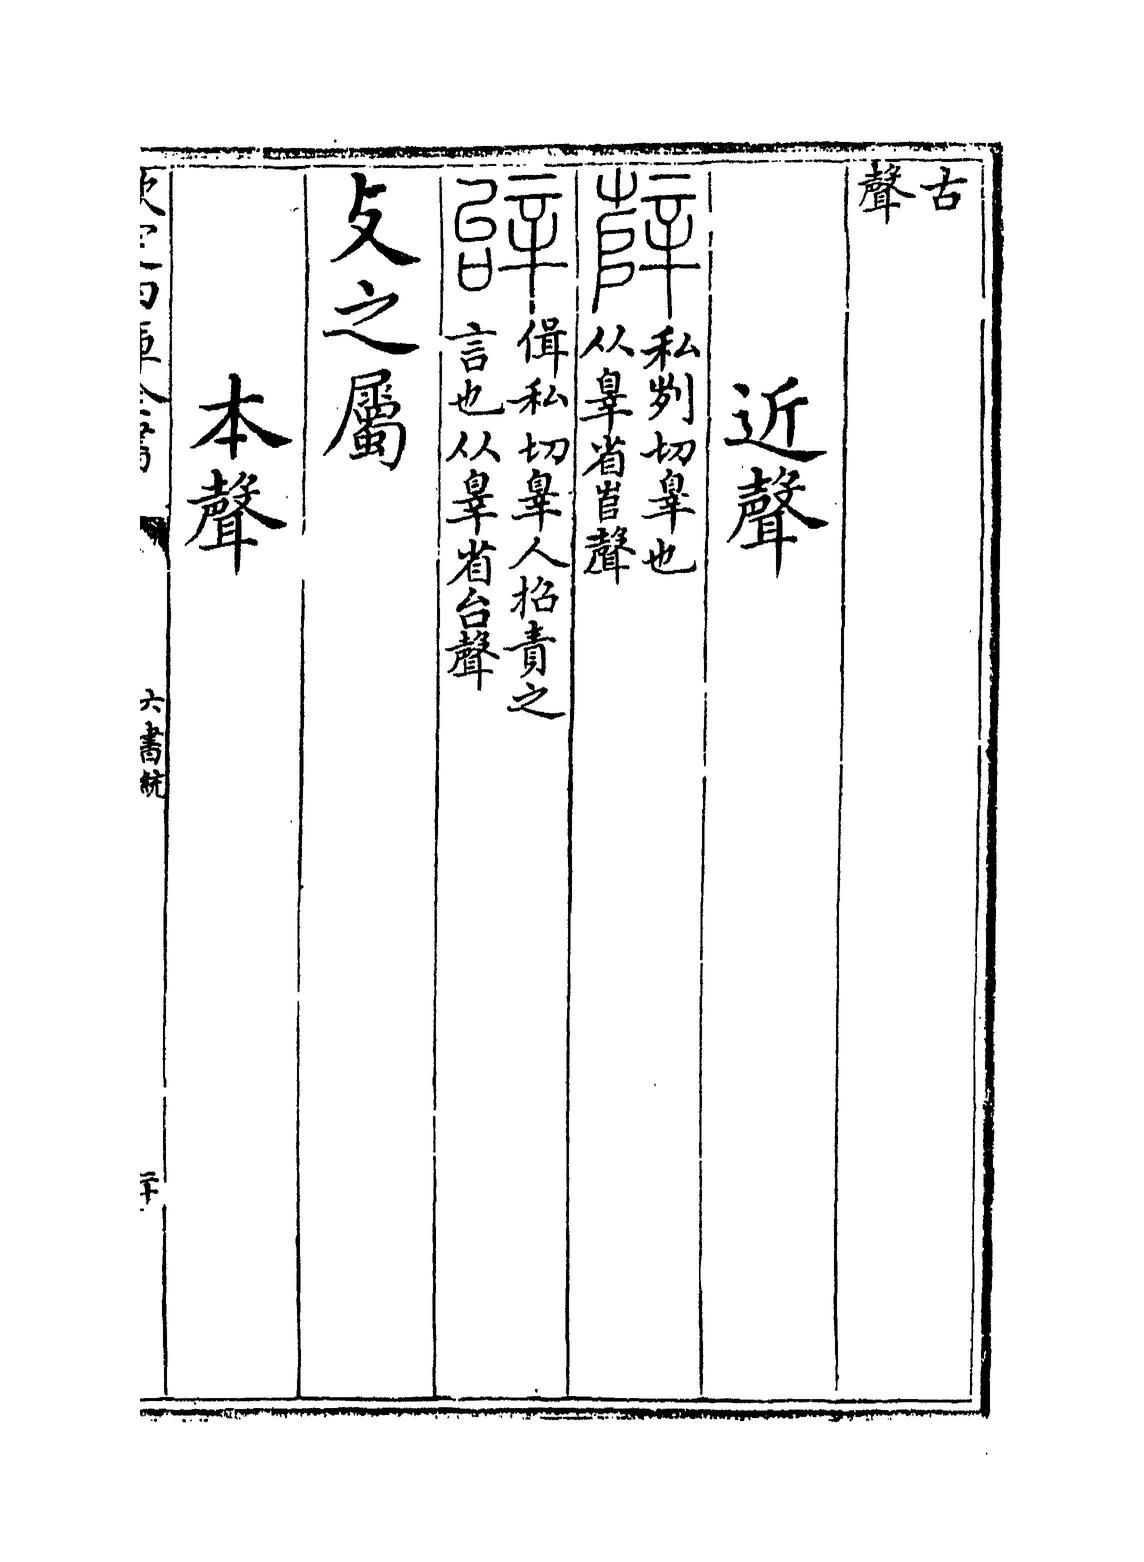 古
聲
近聲
辥 私列切辠也
从辠省𡴎聲
辝 偮私切辠人招責之
言也从辠省台聲
攴之屬
本聲
欽定四庫全書
六書統